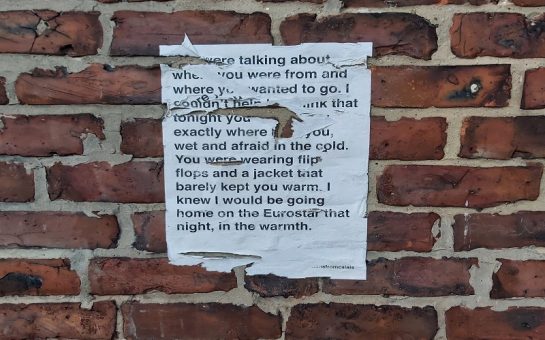 were talking about
you were from and
where wanted to go. I
couldn't that
tonight you
exactly where you,
wet and afraid in the cold.
You were wearing flip
flops and a jacket that
barely kept you warm. I
knew I would be going
home on the Eurostar that
night, in the warmth.